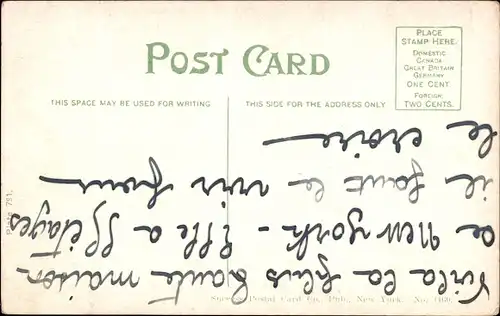 POST CARD
PLACE
STAMP HERE.
DOMESTIC
CANADA
GREAT BRITAIN
GERMANY
ONE CENT.
FOREIGN
TWO CENTS.
THIS SPACE MAY BE USED FOR WRITING
THIS SIDE FOR THE ADDRESS ONLY
Voila la plus haute maison
a New york - Elle a 55 étages
il faut le voir pour
le croire
Postal Card Co., Pub., New York. No.